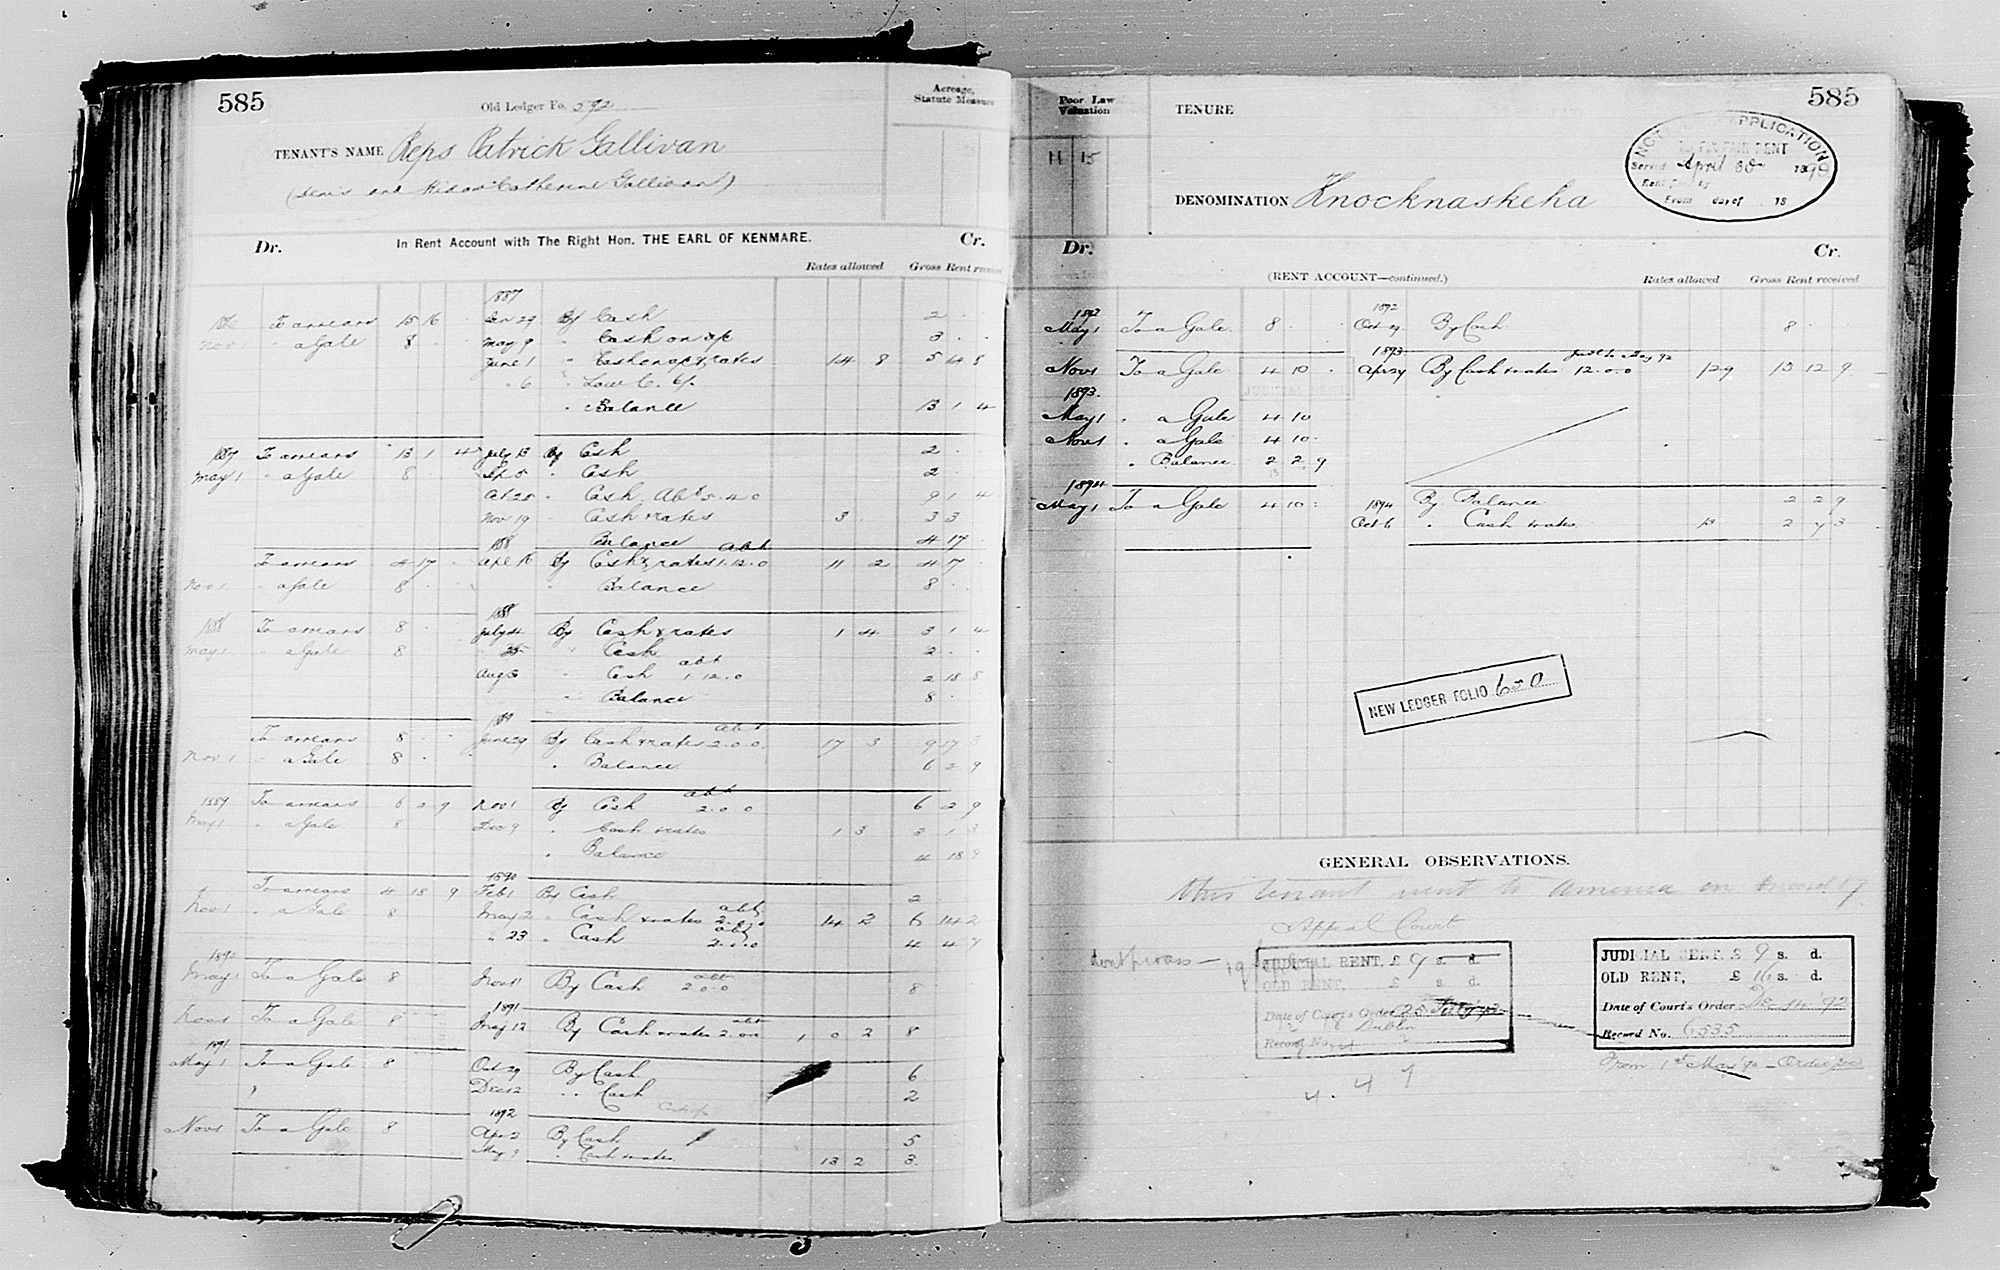 585
Old Ledger Fo. 592
Acreage, Statute Measure
TENANT'S NAME Reps Patrick Gallivan
(Denis and Widow Catherine Gallivan)
Dr. In Rent Account with The Right Hon. THE EARL OF KENMARE. Cr.
Rates allowed Gross Rent received
1887
To arrears 15 16 Jan 29 By Cash 2
Nov a Gale 8 May 9 " Cash on a/c 3
June 1 " Cash on a/c & rates 14 8 5 14 8
" 6 "
" Balance 13 1 4
1887 To arrears 13 1 4 July 13 By Cash 2
May 1 " a Gale 8 Sep 5 " Cash 2
Oct 25 " Cash Abt 5.4.0 9 1 4
Nov 19 " Cash & rates 3 3 3
" Balance 4 17
1888
To arrears 4 17 Apl 16 By Cash & rates abt 1.12.0 11 2 4 17
Nov 1 " a Gale 8 " Balance 8
1888
1888 To arrears 8 July 24 By Cash & rates 1 4 3 1 4
May 1 " a Gale 8 " 25 " Cash 2
Aug " Cash abt 1.12.0 2 18 8
" Balance 8
1889
To arrears 8 June 29 By Cash & rates abt 2.0.0 17 3 9 17 3
Nov 1 " a Gale 8 " Balance 6 2 9
1889 To arrears 6 2 9 Nov 1 By Cash abt 2.0.0 6 2 9
May 1 " a Gale 8 Dec 9 " Cash & rates 1 3 3 1 3
" Balance 4 18 9
1890
To arrears 4 18 9 Feb 1 By Cash 2
Nov 1 " a Gale 8 May 2 " Cash & rates abt 2.0.0 14 2 6 14 2
" 23 " Cash abt 2.0.0 4 4 7
1890
May 1 To a Gale 8 Nov 1 By Cash abt 2.0.0 8
1891
Nov 1 To a Gale 8 May 12 By Cash & rates abt 2.0.0 1 0 2 8
1891
May 1 To a Gale 8 Oct 29 By Cash 6
Dec 12 " Cash 2
1892
Nov 1 To a Gale 8 Apr 2 By Cash 5
May 9 " Cash & rates 13 2 3
585
Poor Law Valuation
TENURE
11 15
NOTICE APPLICATION
TO FIX FAIR RENT
Served April 30 1899
Rent fixed by
From day of 18
DENOMINATION Knocknaskeha
Dr. Cr.
(RENT ACCOUNT—continued.) Rates allowed Gross Rent received
1892 1892
May 1 To a Gale 8 Oct 29 By Cash 8
1893
Nov 1 To a Gale 4 10 Apr 29 By Cash & rates 12.0.0 12 9 13 12 9
JUDICIAL RENT
1893
May 1 " a Gale 4 10
Nov 1 " a Gale 4 10
" Balance 2 2 9
1894
May 1 To a Gale 4 10 1894 By Balance 2 2 9
Oct 6 " Cash & rates 13 2 7 3
NEW LEDGER FOLIO 650
GENERAL OBSERVATIONS.
This tenant went to America on
Appeal Court
JUDICIAL RENT. £ 9 s. d.
OLD RENT. £ s. d.
Date of Court's Order
Dublin
Record No.
JUDICIAL RENT. £ 9 s. d.
OLD RENT, £ 16 s. d.
Date of Court's Order Dec 14 '92
Record No. 6535
From 1st May
4. 4 7